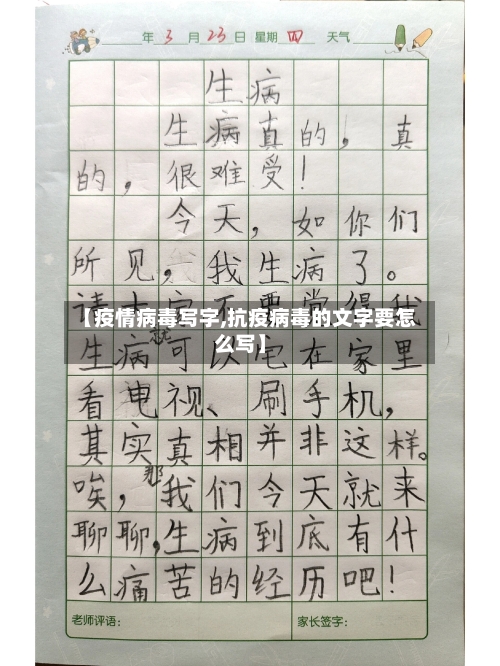 年 3 月 23 日 星期 四 天气
生病
生病真的，真
的，很难受！
今天，如你们
所见，我生病了。
请大家不要觉得我
【疫情病毒写字,抗疫病毒的文字要怎
么写】
生病就可以宅在家里
看电视、刷手机，
其实真相并非这样。
唉，那我们今天就来
聊聊，生病到底有什
么痛苦的经历吧！
老师评语： 家长签字：